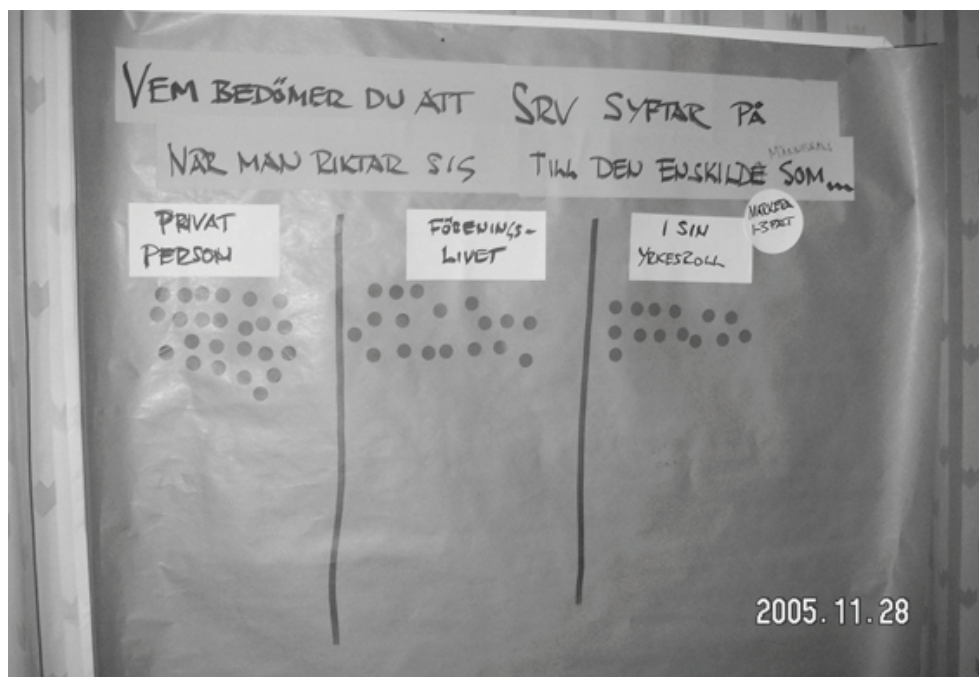 VEM BEDÖMER DU ATT SRV SYFTAR PÅ
NÄR MAN RIKTAR SIG TILL DEN ENSKILDE SOM...
PRIVAT
PERSON
FÖRENINGS-
LIVET
I SIN
YRKESROLL
2005.11.28